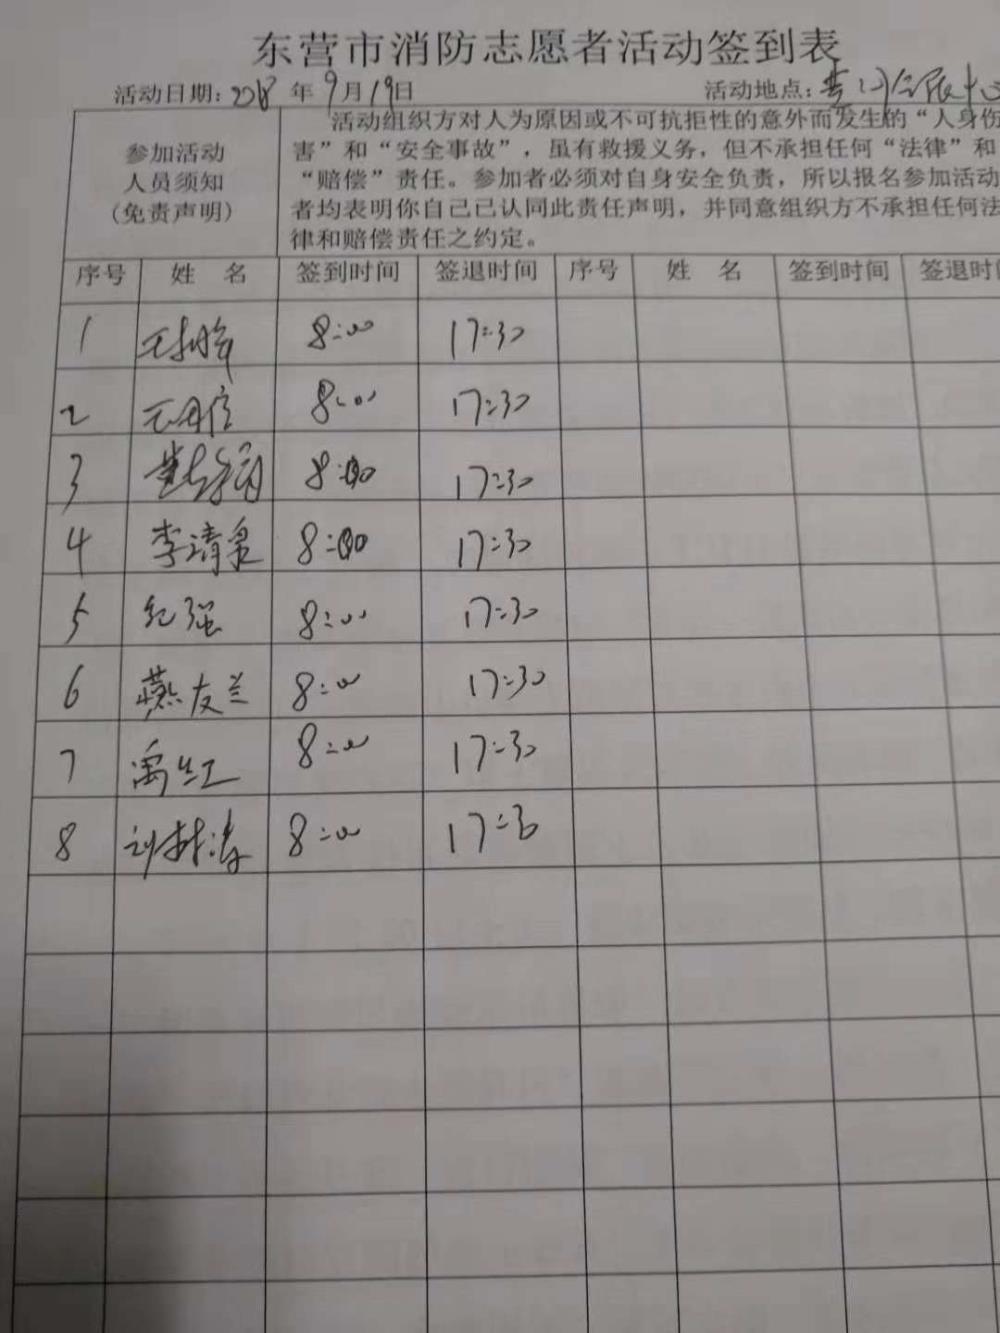 东营市消防志愿者活动签到表
活动日期：2018年9月19日 活动地点：
参加活动人员须知（免责声明）
活动组织方对人为原因或不可抗拒性的意外而发生的“人身伤
害”和“安全事故”，虽有救援义务，但不承担任何“法律”和
“赔偿”责任。参加者必须对自身安全负责，所以报名参加活动
者均表明你自己已认同此责任声明，并同意组织方不承担任何法
律和赔偿责任之约定。
序号 姓名 签到时间 签退时间 序号 姓名 签到时间 签退时间
1 8:00 17:30
2 8:00 17:30
3 8:00 17:30
4 李清泉 8:00 17:30
5 纪强 8:00 17:30
6 燕友兰 8:00 17:30
7 禹红 8:00 17:30
8 刘林涛 8:00 17:30